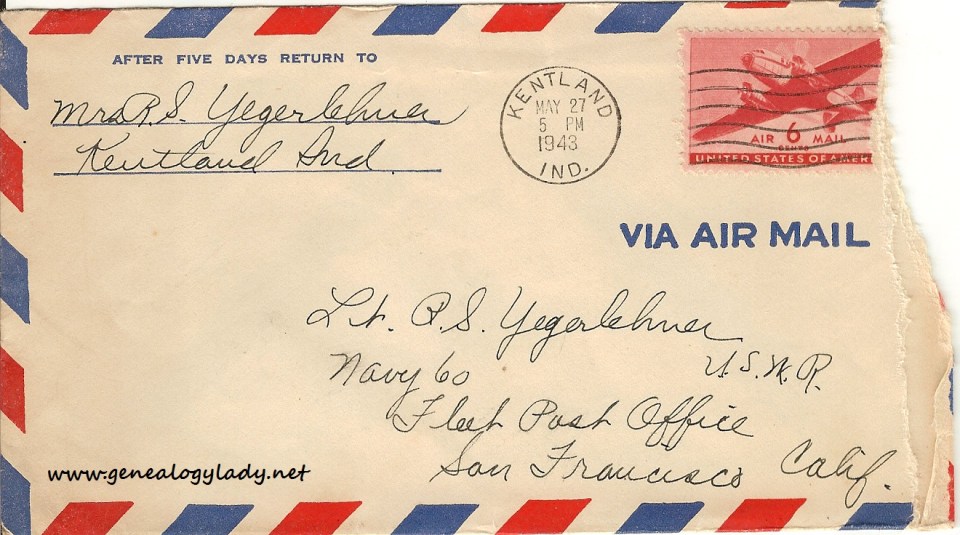 AFTER FIVE DAYS RETURN TO
Mrs R. S. Yegerlehner
Kentland Ind.
KENTLAND
MAY 27
5 PM
1943
IND.
AIR 6 MAIL
CENTS
UNITED STATES OF AMER
VIA AIR MAIL
Lt. R. S. Yegerlehner
Navy 60 U.S.N.R.
Fleet Post Office
San Francisco Calif.
www.genealogylady.net